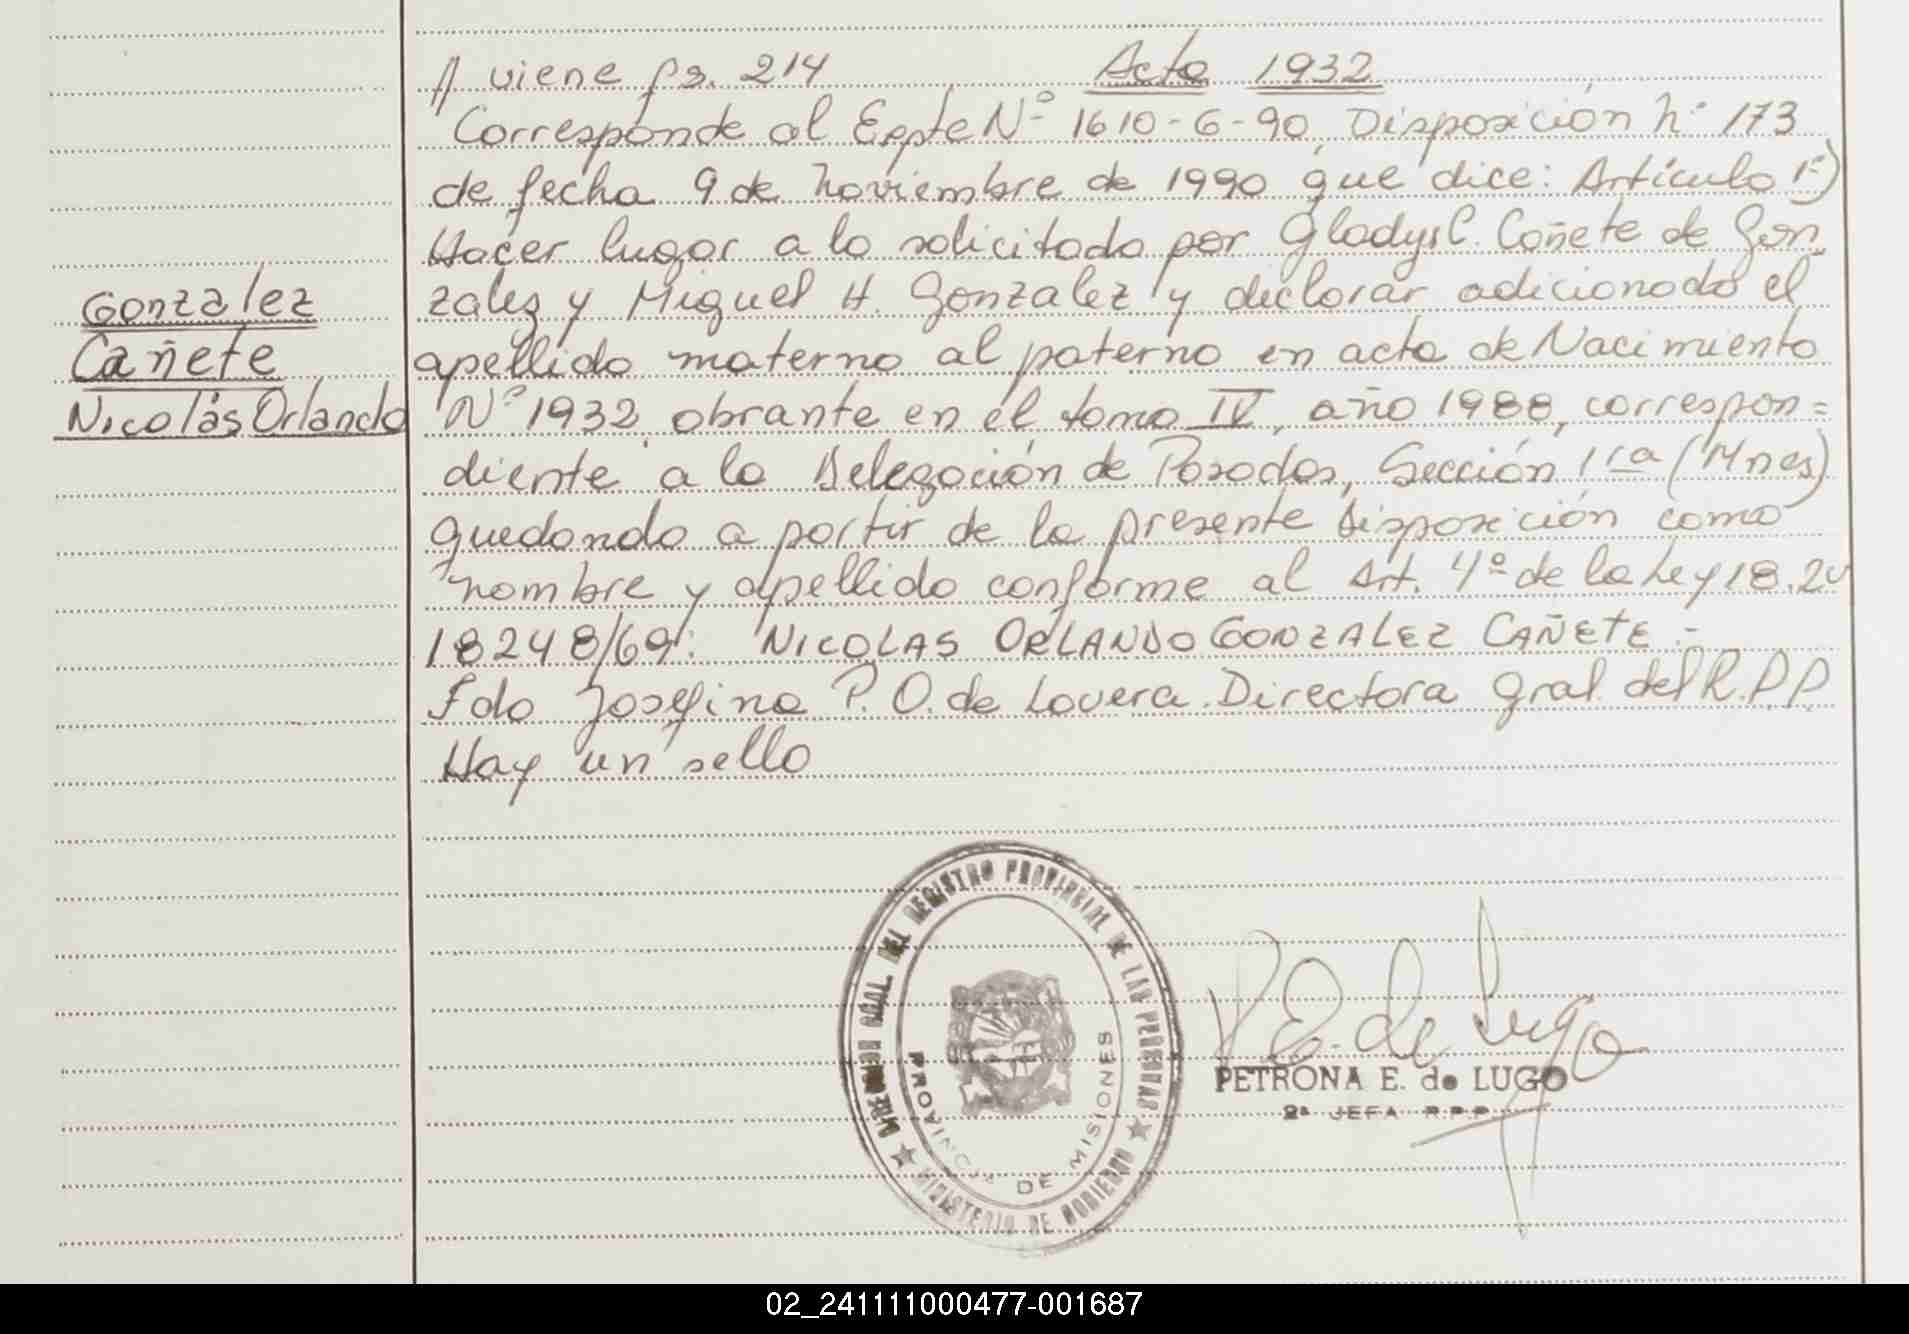 // viene fs. 214 Acta 1932
Corresponde al Expte Nº 1610-6-90, Disposición nº 173
de fecha 9 de noviembre de 1990 que dice: Artículo 1º)
Hacer lugar a lo solicitado por Gladys C. Cañete de Gon
zalez y Miguel H. Gonzalez y declarar adicionado el
apellido materno al paterno en acta de Nacimiento
Nº 1932, obrante en el tomo IV, año 1988, correspon=
diente a la Delegación de Posadas, Sección 1ra (Mnes)
quedando a partir de la presente disposición como
nombre y apellido conforme al Art. 4º de la Ley 18.2
18248/69: NICOLAS ORLANDO GONZALEZ CAÑETE.-
Fdo Josefina P. O. de Lovera. Directora Gral. del R.P.P.
Hay un sello
Gonzalez
Cañete
Nicolás Orlando
DIRECCION GRAL. DEL REGISTRO PROVINCIAL DE LAS PERSONAS
MINISTERIO DE GOBIERNO
PROVINCIA DE MISIONES
P E. de Lugo
PETRONA E. de LUGO
2ª JEFA R.P.P.
02_241111000477-001687